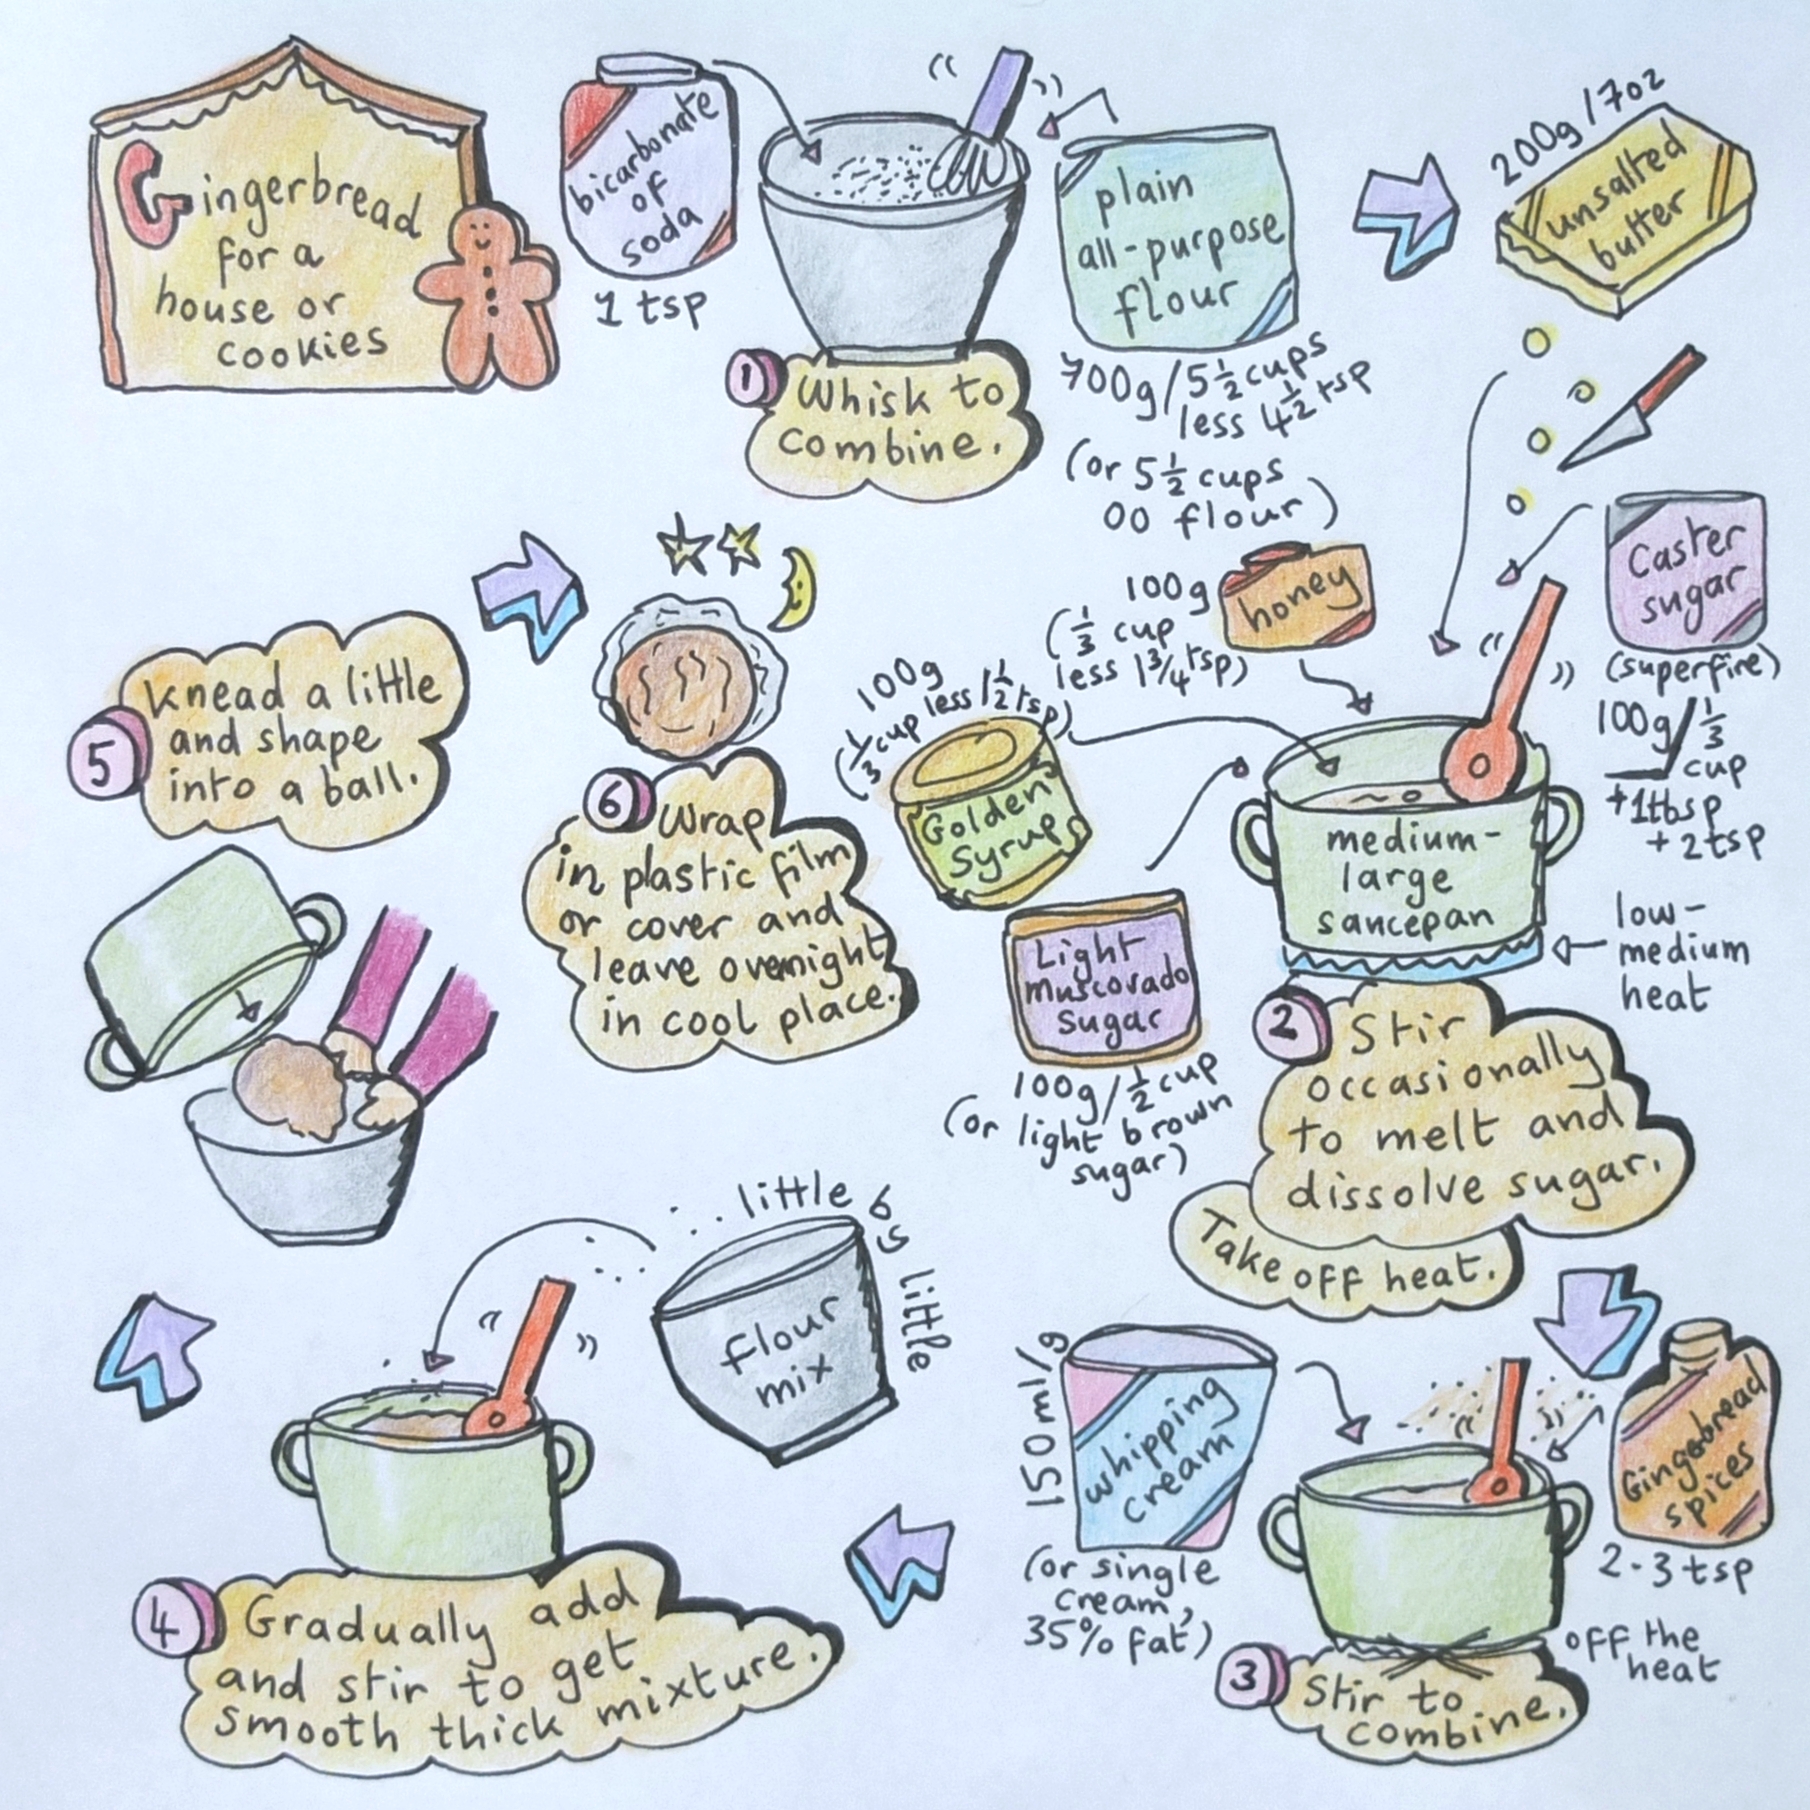 Gingerbread
for a
house or
cookies
bicarbonate
of
soda
1 tsp
plain
all-purpose
flour
700g/5½ cups
less 4½ tsp
(or 5½ cups
00 flour)
1
Whisk to
combine.
200g/7oz
unsalted
butter
Caster
sugar
(superfire)
100g/⅓
cup
+1tbsp
+2tsp
honey
100g
(⅓ cup
less 1¾ tsp)
100g
(⅓ cup less 1½ tsp)
Golden
Syrup
Light
Muscovado
Sugar
100g/½ cup
(or light brown
sugar)
medium-
large
sancepan
low-
medium
heat
2
Stir
occasionally
to melt and
dissolve sugar.
Take off heat.
150ml/g
whipping
cream
(or single
cream,
35% fat)
Gingerbread
spices
2-3 tsp
off the
heat
3
Stir to
combine.
little by little
flour
mix
4
Gradually add
and stir to get
smooth thick mixture.
5
Knead a little
and shape
into a ball.
6
Wrap
in plastic film
or cover and
leave overnight
in cool place.